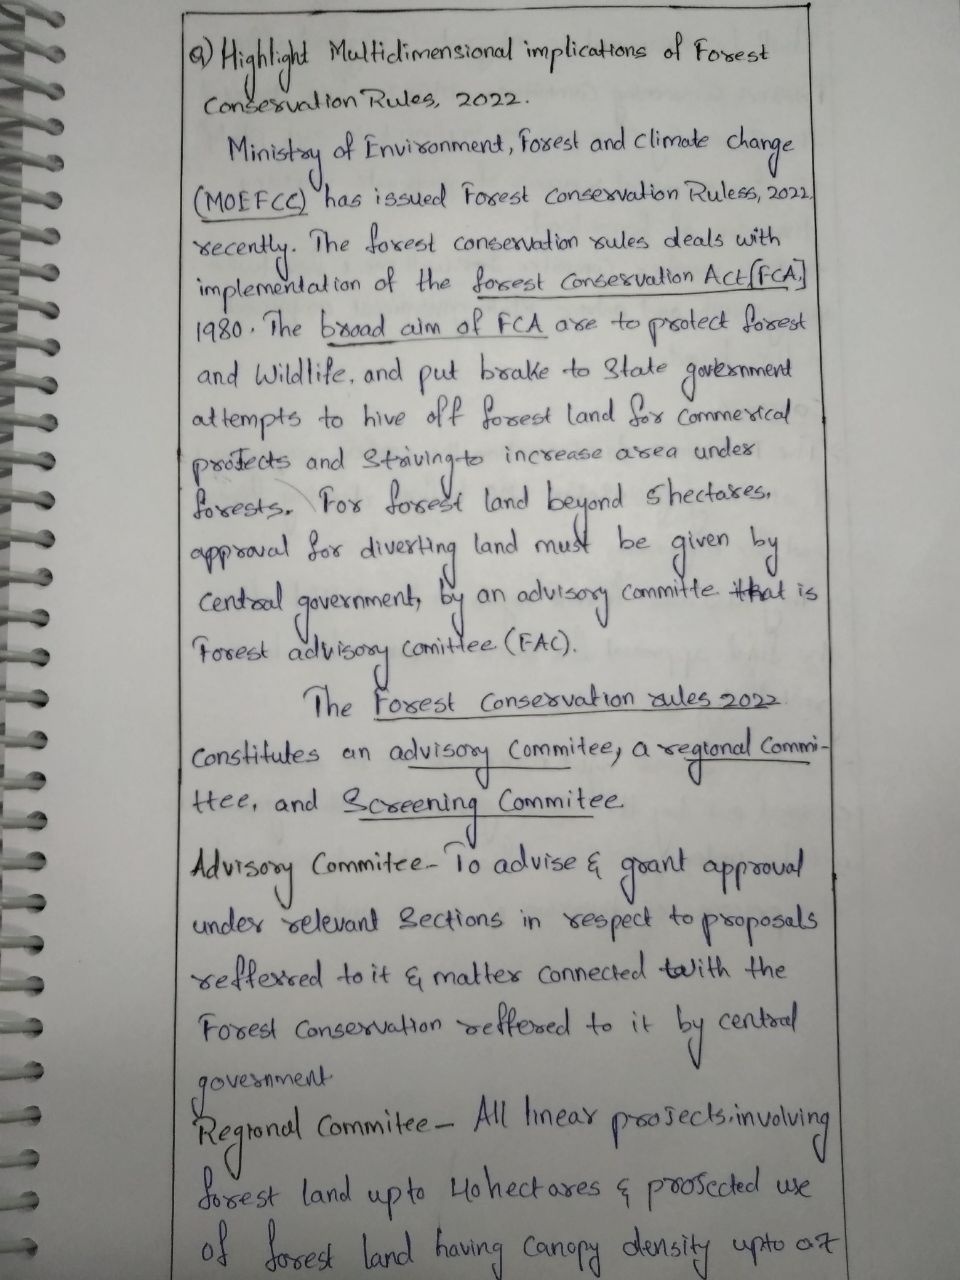 Q) Highlight Multidimensional implications of Forest
Conservation Rules, 2022.
Ministry of Environment, Forest and climate change
(MOEFCC) has issued Forest conservation Ruless, 2022,
recently. The forest conservation rules deals with
implementation of the forest conservation Act [FCA]
1980. The broad aim of FCA are to protect forest
and Wildlife, and put brake to State government
attempts to hive off forest land for commerical
projects and striving to increase area under
forests. For forest land beyond 5 hectares,
approval for diverting land must be given by
central government, by an advisory committe that is
Forest advisory comittee (FAC).
The Forest Conservation rules 2022
constitutes an advisory Commitee, a regional Commi-
ttee, and Screening Commitee
Advisory Commitee- To advise & grant approval
under relevant Sections in respect to proposals
reffered to it & matter connected with the
Forest Conservation reffered to it by central
government
Regional Commitee - All linear projects, involving
forest land upto 40 hectares & projected use
of forest land having canopy density upto 0.7